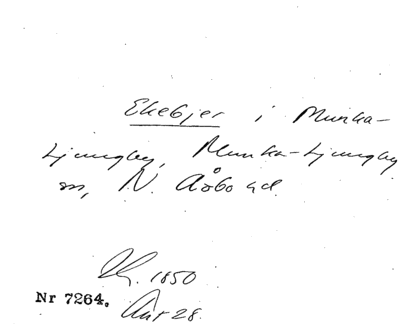 Ekebjer i Munka-
Ljungby, Munka-Ljungby
sn, N. Åsbo hd.
1850
Nr 7264. Akt 28.